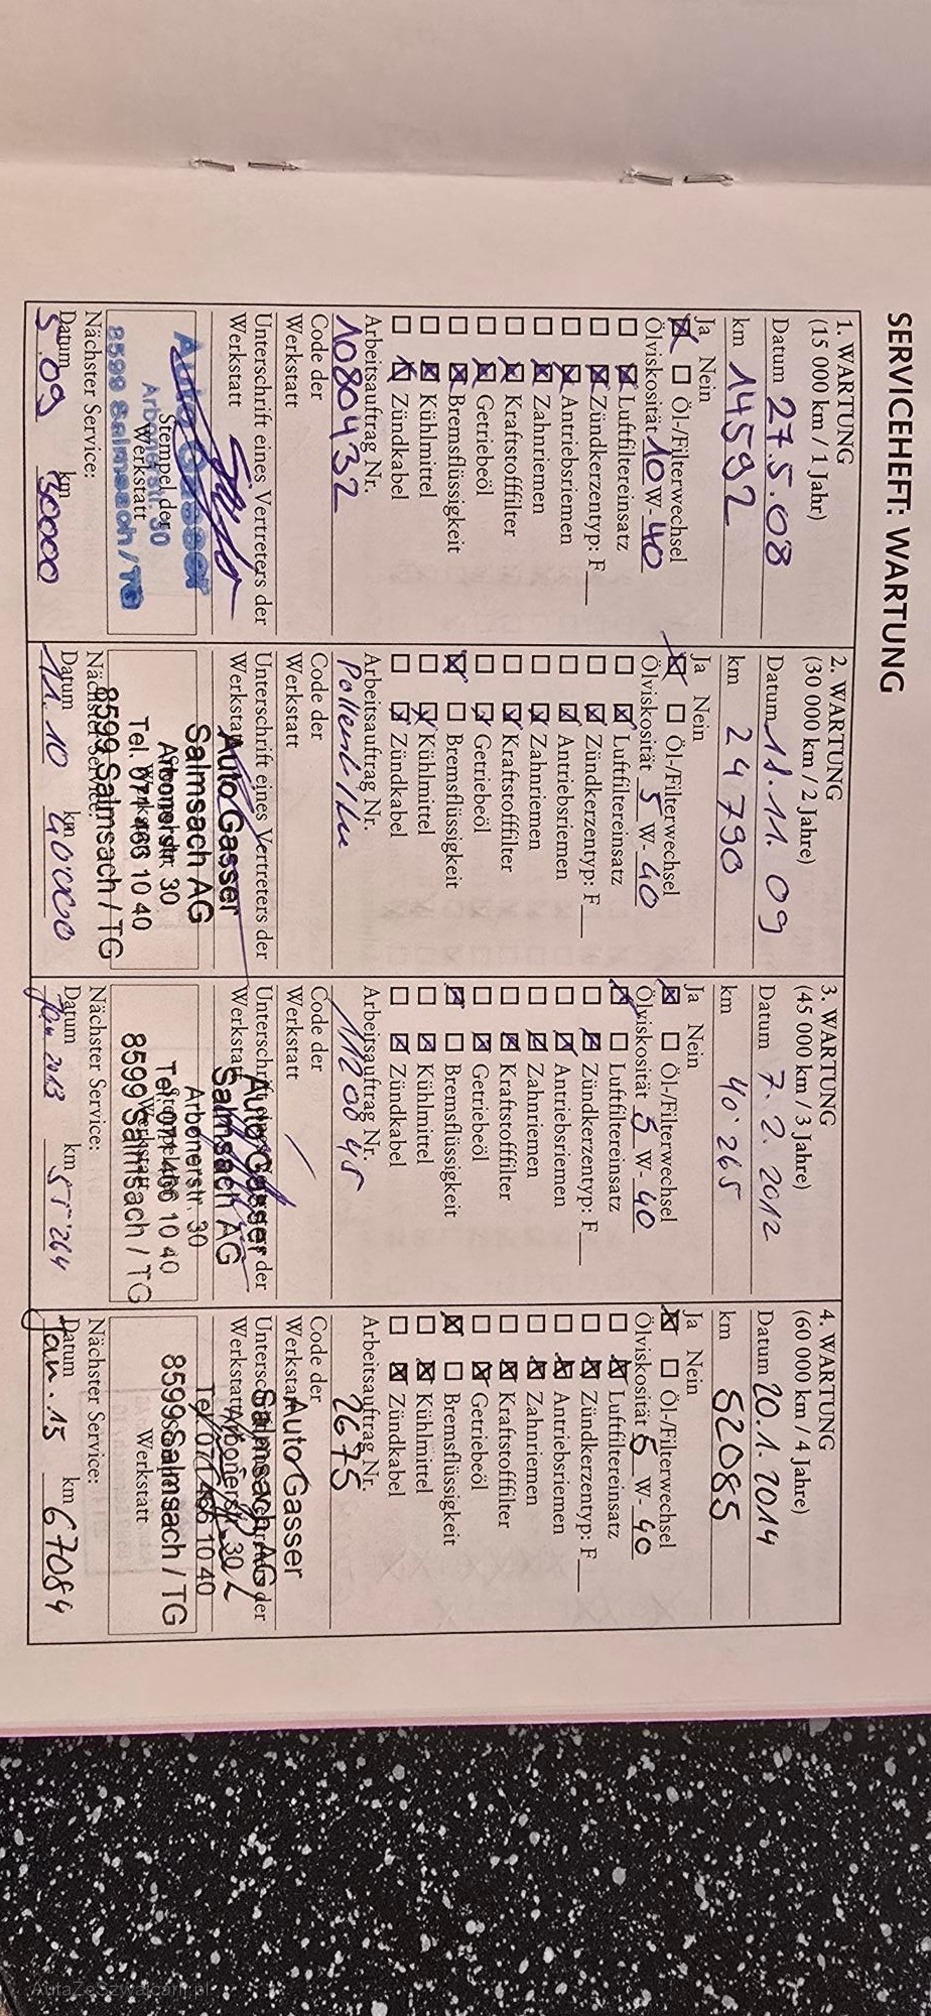 SERVICEHEFT: WARTUNG
1. WARTUNG
(15 000 km / 1 Jahr)
Datum 27.5.08
km 14592
Ja Nein
Öl-/Filterwechsel
Ölviskosität 10 W- 40
Luftfiltereinsatz
Zündkerzentyp: F
Antriebsriemen
Zahnriemen
Kraftstofffilter
Getriebeöl
Bremsflüssigkeit
Kühlmittel
Zündkabel
Arbeitsauftrag Nr.
1080432
Code der
Werkstatt
Unterschrift eines Vertreters der
Werkstatt
Stempel der
Werkstatt
8599 Salmsach / TG
Nächster Service:
Datum 5.09 km 30000
2. WARTUNG
(30 000 km / 2 Jahre)
Datum 11.11.09
km 24790
Ja Nein
Öl-/Filterwechsel
Ölviskosität 5 W- 40
Luftfiltereinsatz
Zündkerzentyp: F
Antriebsriemen
Zahnriemen
Kraftstofffilter
Getriebeöl
Bremsflüssigkeit
Kühlmittel
Zündkabel
Arbeitsauftrag Nr.
Code der
Werkstatt
Unterschrift eines Vertreters der
Werkstatt
Auto Gasser
Salmsach AG
Arbonerstr. 30
Tel. 071 466 10 40
8599 Salmsach / TG
Nächster Service:
Datum 11.10 km 40000
3. WARTUNG
(45 000 km / 3 Jahre)
Datum 7.2.2012
km 40'265
Ja Nein
Öl-/Filterwechsel
Ölviskosität 5 W- 40
Luftfiltereinsatz
Zündkerzentyp: F
Antriebsriemen
Zahnriemen
Kraftstofffilter
Getriebeöl
Bremsflüssigkeit
Kühlmittel
Zündkabel
Arbeitsauftrag Nr.
1120045
Code der
Werkstatt
Unterschrift eines Vertreters der
Werkstatt
Auto Gasser
Salmsach AG
Arbonerstr. 30
Tel. 071 466 10 40
8599 Salmsach / TG
Nächster Service:
Datum Jan 2013 km 55'264
4. WARTUNG
(60 000 km / 4 Jahre)
Datum 20.1.2014
km 52085
Ja Nein
Öl-/Filterwechsel
Ölviskosität 5 W- 40
Luftfiltereinsatz
Zündkerzentyp: F
Antriebsriemen
Zahnriemen
Kraftstofffilter
Getriebeöl
Bremsflüssigkeit
Kühlmittel
Zündkabel
Arbeitsauftrag Nr.
2675
Code der
Werkstatt
Auto Gasser
Salmsach AG
Arbonerstr. 30
Tel. 071 466 10 40
8599 Salmsach / TG
Werkstatt
Nächster Service:
Datum Jan.15 km 67084
AutaZeSzwajcarii.pl